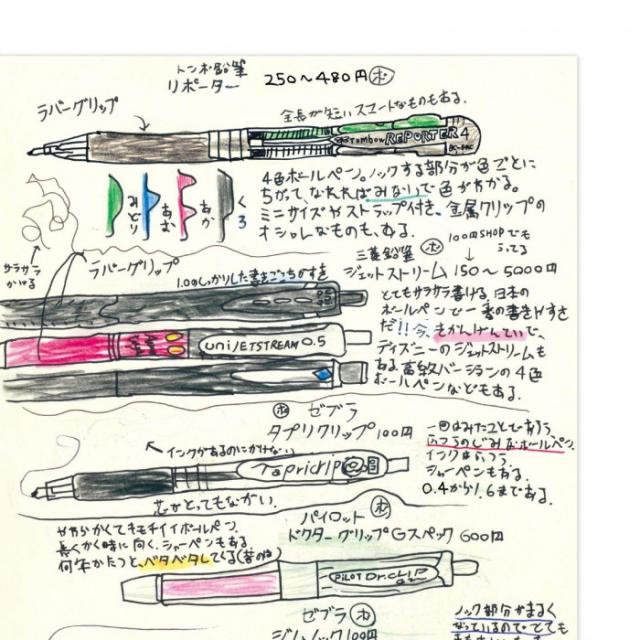 トンボ鉛筆
リポーター 250〜480円 ボ
ラバーグリップ
全長が短いスマートなものもある。
Tombow REPORTER 4
BC-FRC
4色ボールペン。ノックする部分が色ごとに
ちがって、なれればみないで色がわかる。
ミニサイズやストラップ付き、金属クリップの
オシャレなものも、ある。
みどり
あお
あか
くろ
サラサラ
かける
ラバーグリップ
三菱鉛筆 ボ
100円SHOPでも
うってる
ジェットストリーム 150〜5000円
とてもサラサラ書ける。日本の
ボールペンで一番の書きやすさ
だ!!今、きかんげんていで、
ディズニーのジェットストリームも
ある。高級バージョンの4色
ボールペンなどもある。
uni JETSTREAM 0.5
ボ ゼブラ
タプリクリップ 100円
インクがあるのにかけない
一回はみたことであろう、
ふつうのじみなボールペン。
インクはふつう。
シャーペンもある。
0.4から1.6まである。
Tapriclip
芯がとってもながい。
パイロット ボ
ドクターグリップGスペック 600円
やわらかくてキモチイイボールペン。
長くかく時に向く。シャーペンもある。
何年かたつと、ベタベタしてくる
PILOT Dr.CLIP
ゼブラ ボ
ジムノック 100円
ノック部分がまるく
なっているのでとても